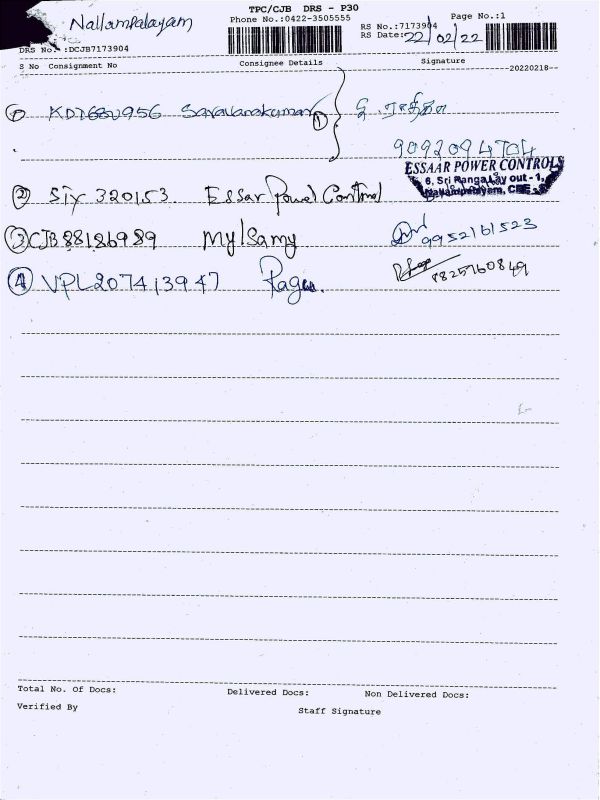 Nallampalayam
TPC/CJB DRS - P30
Phone No.:0422-3505555
Page No.:1
RS No.:7173904
RS Date: 22/02/22
DRS No.:DCJB7173904
S No Consignment No Consignee Details Signature
--20220218--
① Saravanakumar ①
9092094704
ESSAAR POWER CONTROLS
6, Sri Ranga Lay out - 1,
Nallampalayam, CBE - 6
② Six 320153 Essar Powel Control
③ CJB 88186989 Mylsamy 9952161523
④ VPL207413947 Ragu. 8825760849
Total No. Of Docs: Delivered Docs: Non Delivered Docs:
Verified By Staff Signature